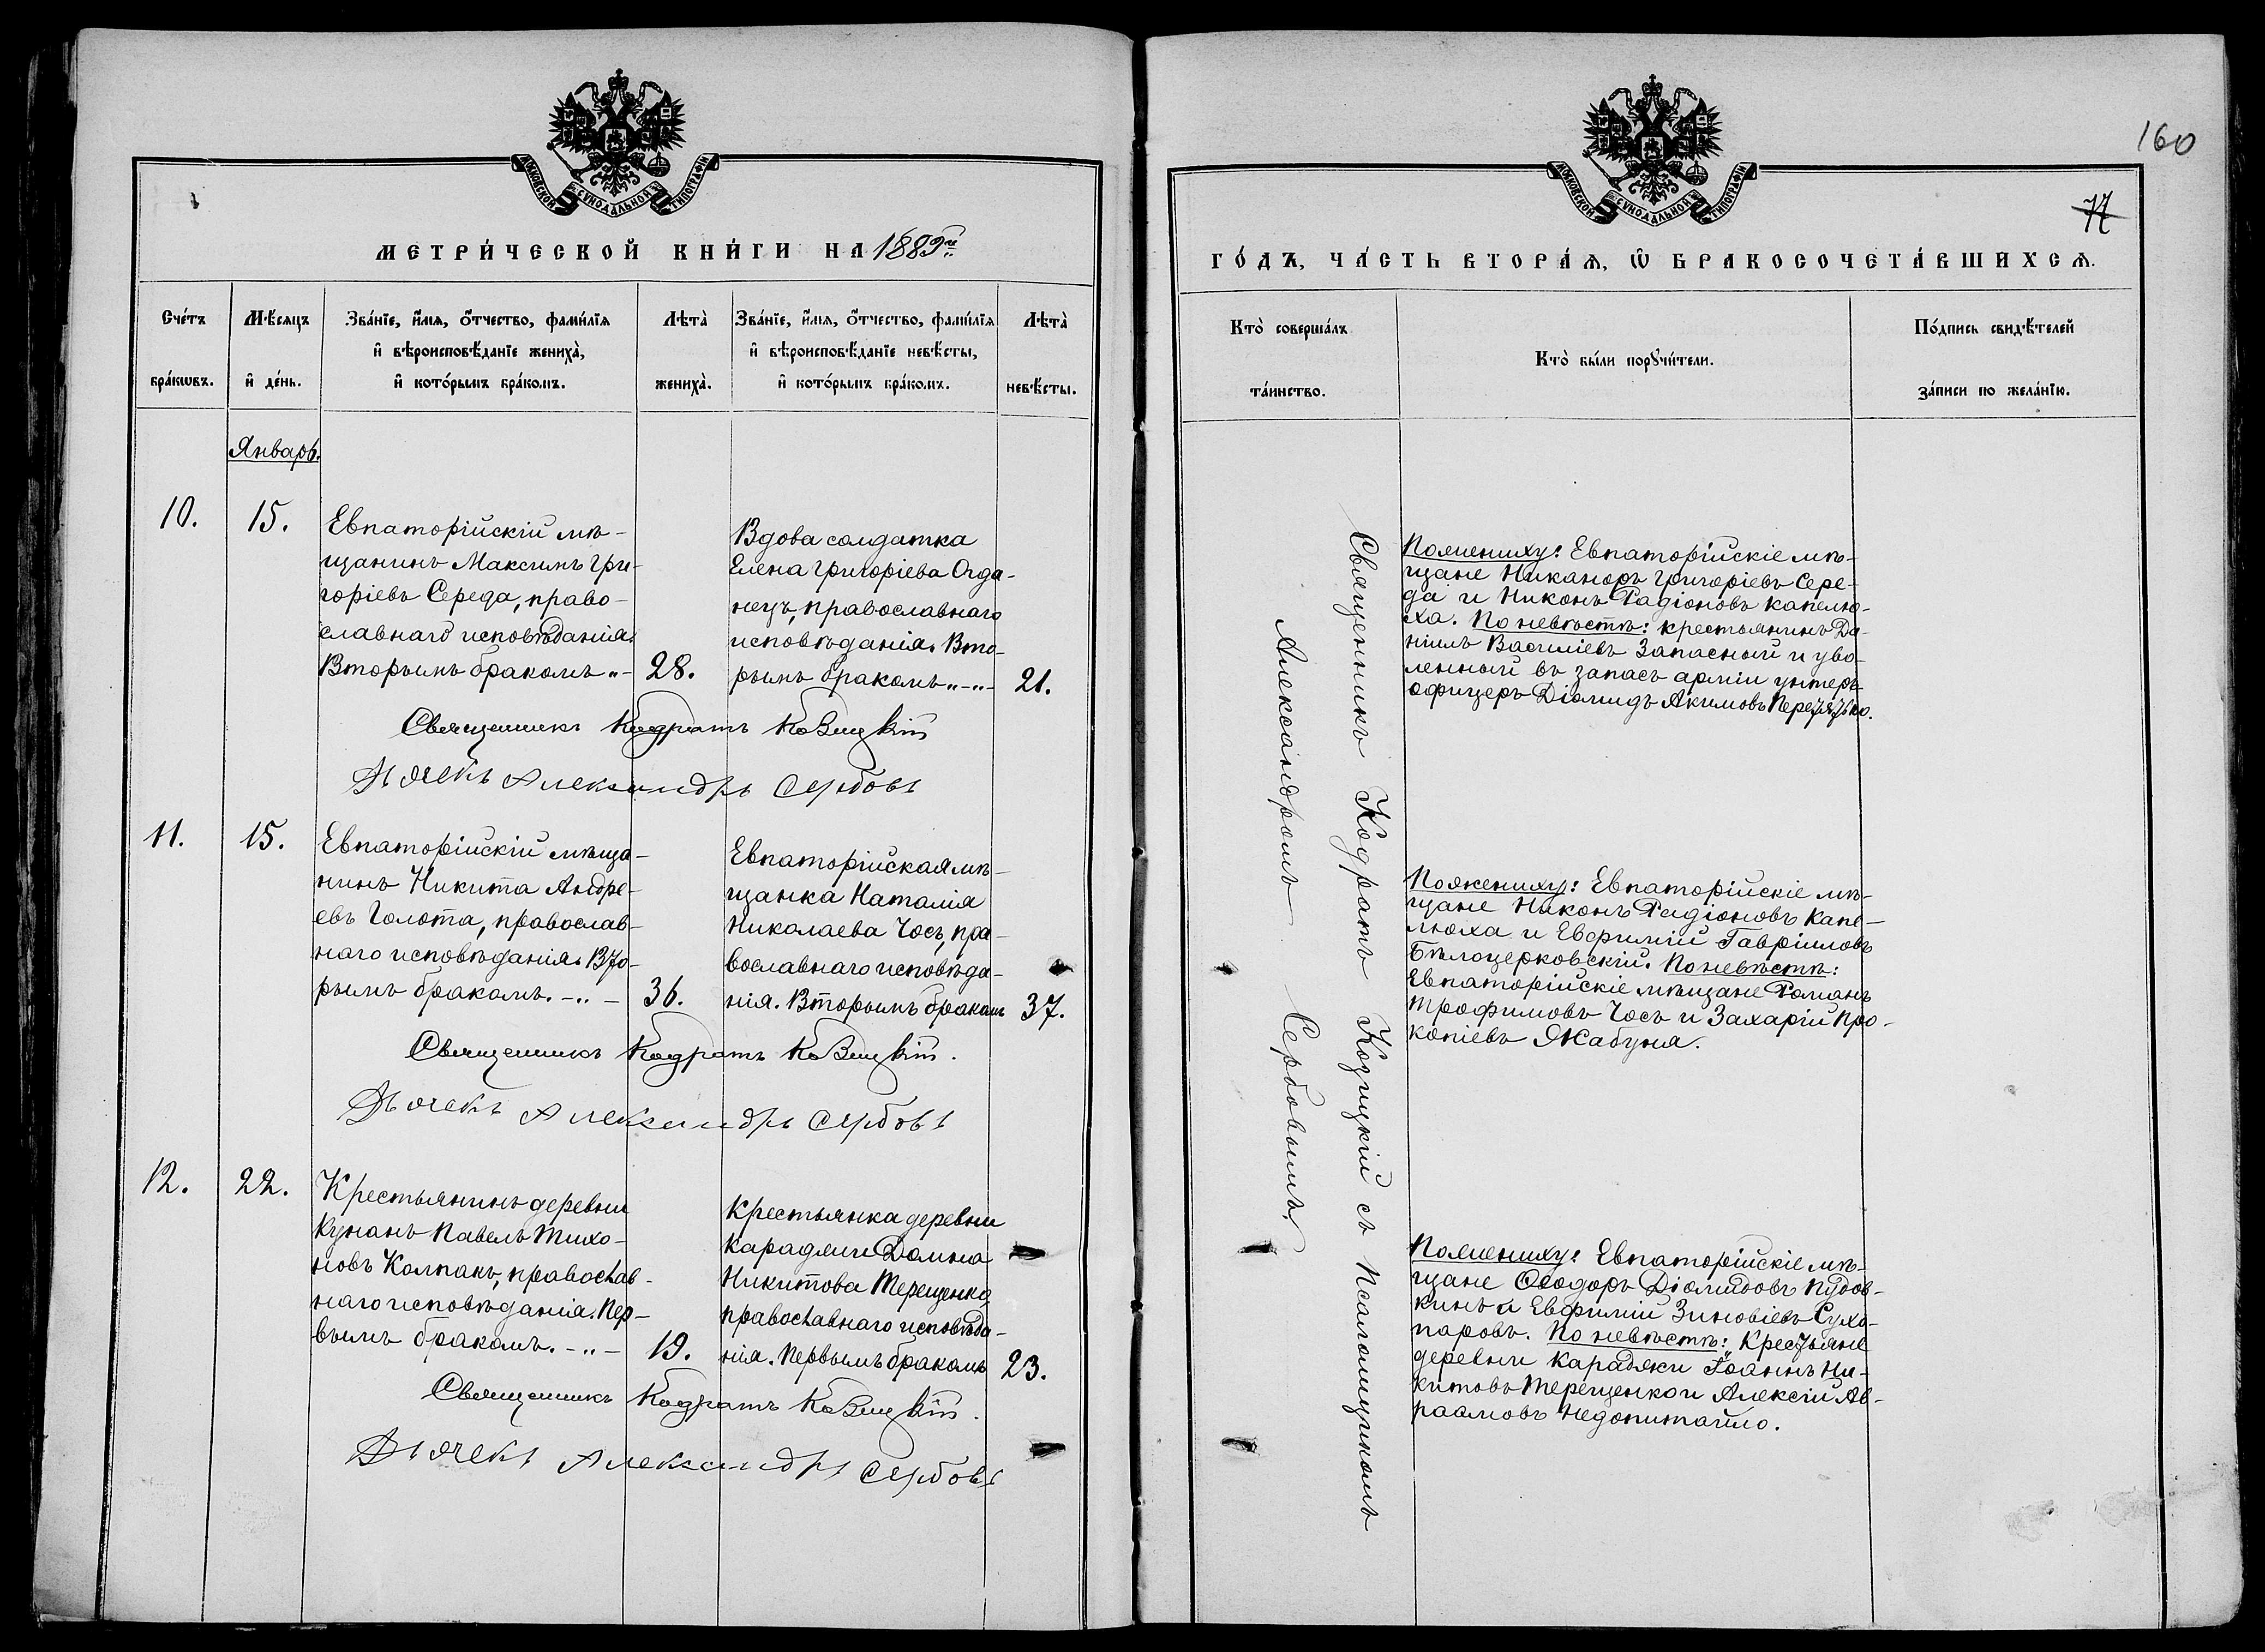 МОСКОВСКОЙ СѴНОДАЛЬНОЙ ТИПОГРАФІИ
МЕТРИ́ЧЕСКОЙ КНИ́ГИ НА 1889й
Сче́тъ бра́кѡвъ.
Мѣ́сяцъ и҆ де́нь.
Зва́нїе, и҆́мѧ, ѻ҆́тчество, фами́лїѧ
и҆ вѣроисповѣ́данїе жениха̀,
и҆ кото́рымъ бра́комъ.
Лѣта̀ жениха̀.
Зва́нїе, и҆́мѧ, ѻ҆́тчество, фами́лїѧ
и҆ вѣроисповѣ́данїе невѣ́сты,
и҆ кото́рымъ бра́комъ.
Лѣта̀ невѣ́сты.
Январь.
10.
15.
Евпаторійскій мѣ-
щанинъ Максимъ Гри-
горіевъ Середа, право-
славнаго исповѣданія.
Вторымъ бракомъ „-
28.
Вдова солдатка
Елена Григоріева Огда-
нецъ, православнаго
исповѣданія. Вто-
рымъ бракомъ „-„-
21.
Священникъ Кодратъ Козицкій
Дьячекъ Александръ Сербовъ
11.
15.
Евпаторійскій мѣща-
нинъ Никита Андре-
евъ Голота, православ-
наго исповѣданія. Вто-
рымъ бракомъ. -„-
36.
Евпаторійская мѣ-
щанка Наталія
Николаева Чосъ, пра-
вославнаго исповѣда-
нія. Вторымъ бракомъ
37.
Священникъ Кодратъ Козицкій.
Дьячекъ Александръ Сербовъ
12.
22.
Крестьянинъ деревни
Кунанъ Павелъ Тихо-
новъ Колпакъ, православ-
наго исповѣданія. Пер-
вымъ бракомъ. -„-
19.
Крестьянка деревни
Караджи Домна
Никитова Терещенко,
православнаго исповѣда-
нія. Первымъ бракомъ
23.
Священникъ Кодратъ Козицкій.
Дьячекъ Александръ Сербовъ
160
77
МОСКОВСКОЙ СѴНОДАЛЬНОЙ ТИПОГРАФІИ
ГО́ДЪ, ЧА́СТЬ ВТОРА́Ѧ, Ѽ БРАКОСОЧЕТА́ВШИХСѦ.
Кто̀ соверша́лъ та́инство.
Кто̀ бы́ли порꙋчи́тели.
По́дпись свидѣ́телей
за́писи по жела́нїю.
Священникъ Кодратъ Козицкій съ Псаломщикомъ
Александромъ Сербовымъ
По жениху: Евпаторійскіе мѣ-
щане Никаноръ Григоріевъ Сере-
да и Никонъ Радіоновъ Капелю-
ха. По невѣстѣ: крестьянинъ Да-
ніилъ Василіевъ Запасный и уво-
ленный въ запасъ арміи унтеръ-
офицеръ Діомидъ Акимовъ
По жениху: Евпаторійскіе мѣ-
щане Никонъ Радіоновъ Капе-
люха и Евфимій Гавріиловъ
Бѣлоцерковскій. По невѣстѣ:
Евпаторійскіе мѣщане Романъ
Трофимовъ Чосъ и Захарій Про-
копіевъ Жабуня.
По жениху: Евпаторійскіе мѣ-
щане Ѳеодоръ Діомидовъ Пудов-
кинъ и Евфимій Зиновіевъ Сухо-
паровъ. По невѣстѣ: Крестьяне
деревни Караджи Іоаннъ Ни-
китовъ Терещенко и Алексій Ав-
раамовъ Недопитайло.